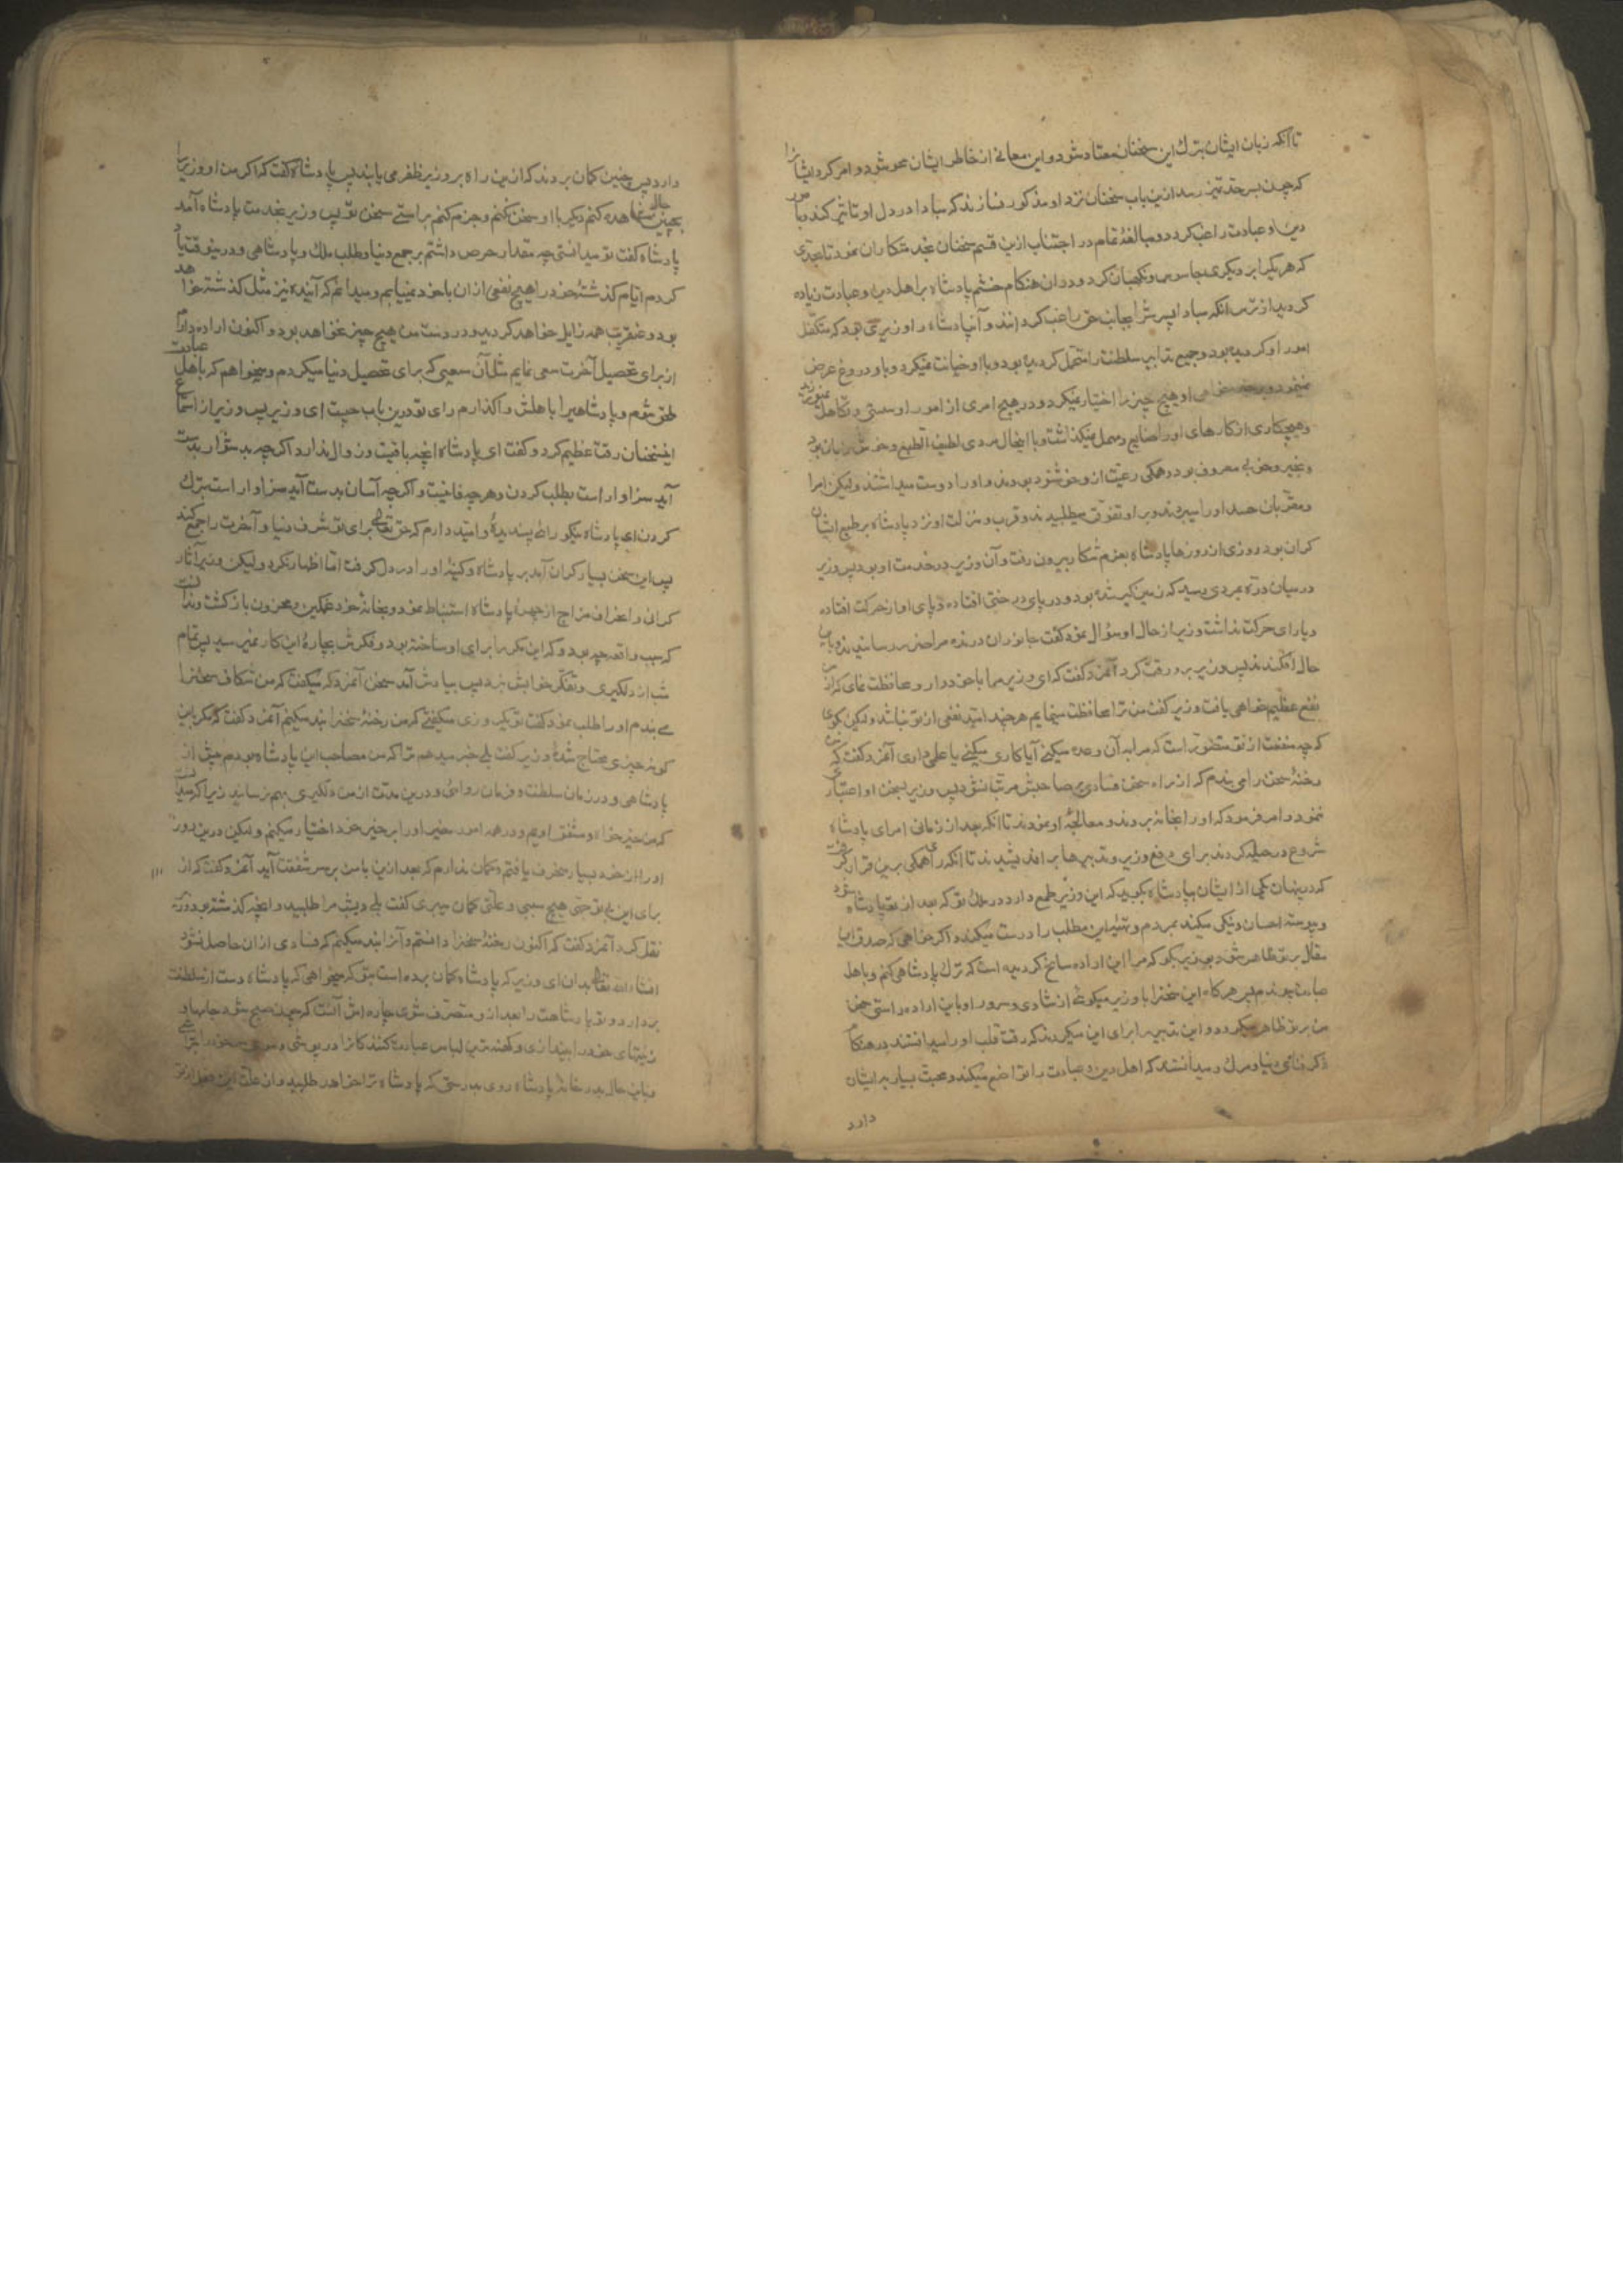 تا آنکه زبان ایشان بترك این سخنان معتاد شود و این معانی از خاطر ایشان محو شود و امر کرد ایشانرا
که چون بسر حد تمیز رسد ازین باب سخنان نزد او مذکور نسازند که مبادا در دل او تاثیر کند و بامور
دین و عبادت راغب کردد و مبالغهٔ تمام در اجتناب ازین قسم سخنان بخدمتکاران نمود تا بحدی
که هر یکرا بر دیکری جاسوس و نکهبان کرد و در ان هنکام خشم پادشاه بر اهل دین و عبادت زیاده
کردید از ترس انکه مبادا پسرش را بجانب حق راغب کردانند و آن پادشاه را وزیری بود که متکفل
امور او کردیده بود و جمیع تدابیر سلطنت را متحمل کردیده بود و با او خیانت نمیکرد و باو دروغ عرض
نمینمود و بر خیر خواهی او هیچ چیز را اختیار نمیکرد و در هیچ امری از امور او سستی و تکاهل نمیورزید
و هیچکاری از کارهای او را ضایع و مهمل نمیکذاشت و با اینحال مردی لطیف الطبع و خوش زبان بود
و بخیر و خوبی معروف بود و همکی رعیت ازو خوشنود بودند و او را دوست میداشتند ولیکن امرا
و مقربان حسد او را میبردند و بر او تفوق میطلبیدند و قرب و منزلت او نزد پادشاه بر طبع ایشان
کران بود روزی از روزها پادشاه بعزم شکار بیرون رفت و آن وزیر در خدمت او بود پس وزیر
در میان دره بمردی رسید که زمین کیر شده بود و در پای درختی افتاده و پای او از حرکت افتاده
و یارای حرکت نداشت وزیر از حال او سؤال نمود کفت جانوران درنده مرا ضرر رسانیدند و باین
حال افکندند پس وزیر برو رقت کرد آنمرد کفت که ای وزیر مرا با خود دار و محافظت نمای که از من
نفع عظیم خواهی یافت وزیر کفت من ترا محافظت مینمایم هر چند امید نفعی از تو نباشد ولیکن بکوی
که چه منفعت از تو متصور است که مرا به آن وعده میکنی آیا کاری میکنی یا علمی داری آنمرد کفت که من
رخنهٔ سخن را می بندم که از راه سخن فسادی بر صاحبش مرتب نشود پس وزیر بسخن او اعتباری
ننمود و امر فرمود که او را بخانه بردند و معالجهٔ او نمودند تا انکه بعد از زمانی امرای پادشاه
شروع در حیله کردند برای دفع وزیر و تدبیرها بر اندیشیدند تا انکه رأی همکی برین قرار کرفت
که در پنهان یکی از ایشان بپادشاه بکوید که این وزیر طمع دارد در ملك تو که بعد از تو پادشاه شود
و پیوسته احسان و نیکی میکند بمردم و تهیهٔ این مطلب را درست میکند و اکر خواهی که صدق این
مقال بر تو ظاهر شود بوزیر بکو که مرا این اراده سانح کردیده است که ترك پادشاهی کنم و باهل
عبادت بپیوندم پس هر کاه این سخنرا با وزیر میکوئی از شادی و سرور او باین اراده راستی سخن
من بر تو ظاهر میکردد و این تدبیر را برای این میکردند که رقت قلب او را میدانستند در هنکام
ذکر فنای دنیا و مرك و میدانستند که اهل دین و عبادت را تواضع میکند و محبت بسیار بر ایشان
دارد
دارد پس چنین کمان بردند که ازین راه بر وزیر ظفر می یابند پس پادشاه کفت که اکر من از وزیر
چنین حال مشاهده کنم دیکر با او سخن نکنم و جزم کنم براستی سخن تو پس وزیر بخدمت پادشاه آمد
پادشاه کفت تو میدانستی چه مقدار حرص داشتم بر جمع دنیا و طلب ملك و پادشاهی و درینوقت یاد
کردم ایام کذشتهٔ خود را هیچ نفعی از ان با خود نمییابم و میدانم که آینده نیز مثل کذشته خواهد
بود و عنقریب همه زایل خواهد کردید و در دست من هیچ چیز نخواهد بود و اکنون اراده دارم
از برای تحصیل آخرت سعی نمایم مثل آن سعیی که برای تحصیل دنیا میکردم و میخواهم که باهل عبادت
ملحق شوم و پادشاهیرا باهلش واکذارم رای تو درین باب چیست ای وزیر پس وزیر از استماع
اینسخنان رقت عظیم کرد و کفت ای پادشاه انچه باقیست و زوال ندارد اکر چه بدشوار بدست
آید سزاوار است بطلب کردن و هر چه فانیست و اکر چه آسان بدست آید سزاوار است بترك
کردن ای پادشاه نیکو رأی پسندیدهٔ و امیدوارم که حق تعالی برای تو شرف دنیا و آخرت را جمع کند
پس این سخن بسیار کران آمد بر پادشاه و کینهٔ او را در دل کرفت اما اظهار نکرد ولیکن وزیر آثار
کرانی و انحراف مزاج از چهرهٔ پادشاه استنباط نمود و بخانهٔ خود غمکین و محزون بازکشت و ندانست
که سبب واقعه چه بود و که این مکر را برای او ساخته بود و فکرش بچارهٔ این کار نمیرسید پس تمام
شب از دلکیری و تفکر خوابش نبرد پس بیادش آمد سخن آنمرد که میکفت که من شکاف سخنرا
می بندم او را طلب نمود کفت تو یك روزی میکفتی که من رخنهٔ سخنرا بند میکنم آنمرد کفت که مکر باین
کونه چیزی محتاج شدهٔ وزیر کفت بلی خبر میدهم ترا که من مصاحب این پادشاه بودم پیش از
پادشاهی و در زمان سلطنت و فرمان روائی و درین مدت از من دلکیری بهم نرسانید زیرا که میدانست
که من خیرخواه و مشفق اویم و در همه امور خیر او را بر خیر خود اختیار میکنم ولیکن درین روز
او را از خود بسیار منحرف یافتم و کمان ندارم که بعد ازین با من بر سر شفقت آید آنمرد کفت که از
برای این تو هیچ سببی و علتی کمان میبری کفت بلی دیشب مرا طلبید و انچه کذشته بود
نقل کرد آنمرد کفت که اکنون رخنهٔ سخنرا دانستم و آنرا بند میکنم که فسادی از ان حاصل نشود
انشاء الله تعالی بدان ای وزیر که پادشاه کمان برده است بتو که میخواهی که پادشاه دست از سلطنت
بردارد و تو پادشاهی را بعد از و متصرف شوی چاره اش آنست که چون صبح شود جامها و
زینتهای خود را بیندازی و کهنه ترین لباس عباد که میکنند کانرا در پوشی و موی سر خود را بتراشی
و باین حال بدر خانهٔ پادشاه روی بدرستی که پادشاه ترا خواهد طلبید و از علت این فعل از تو